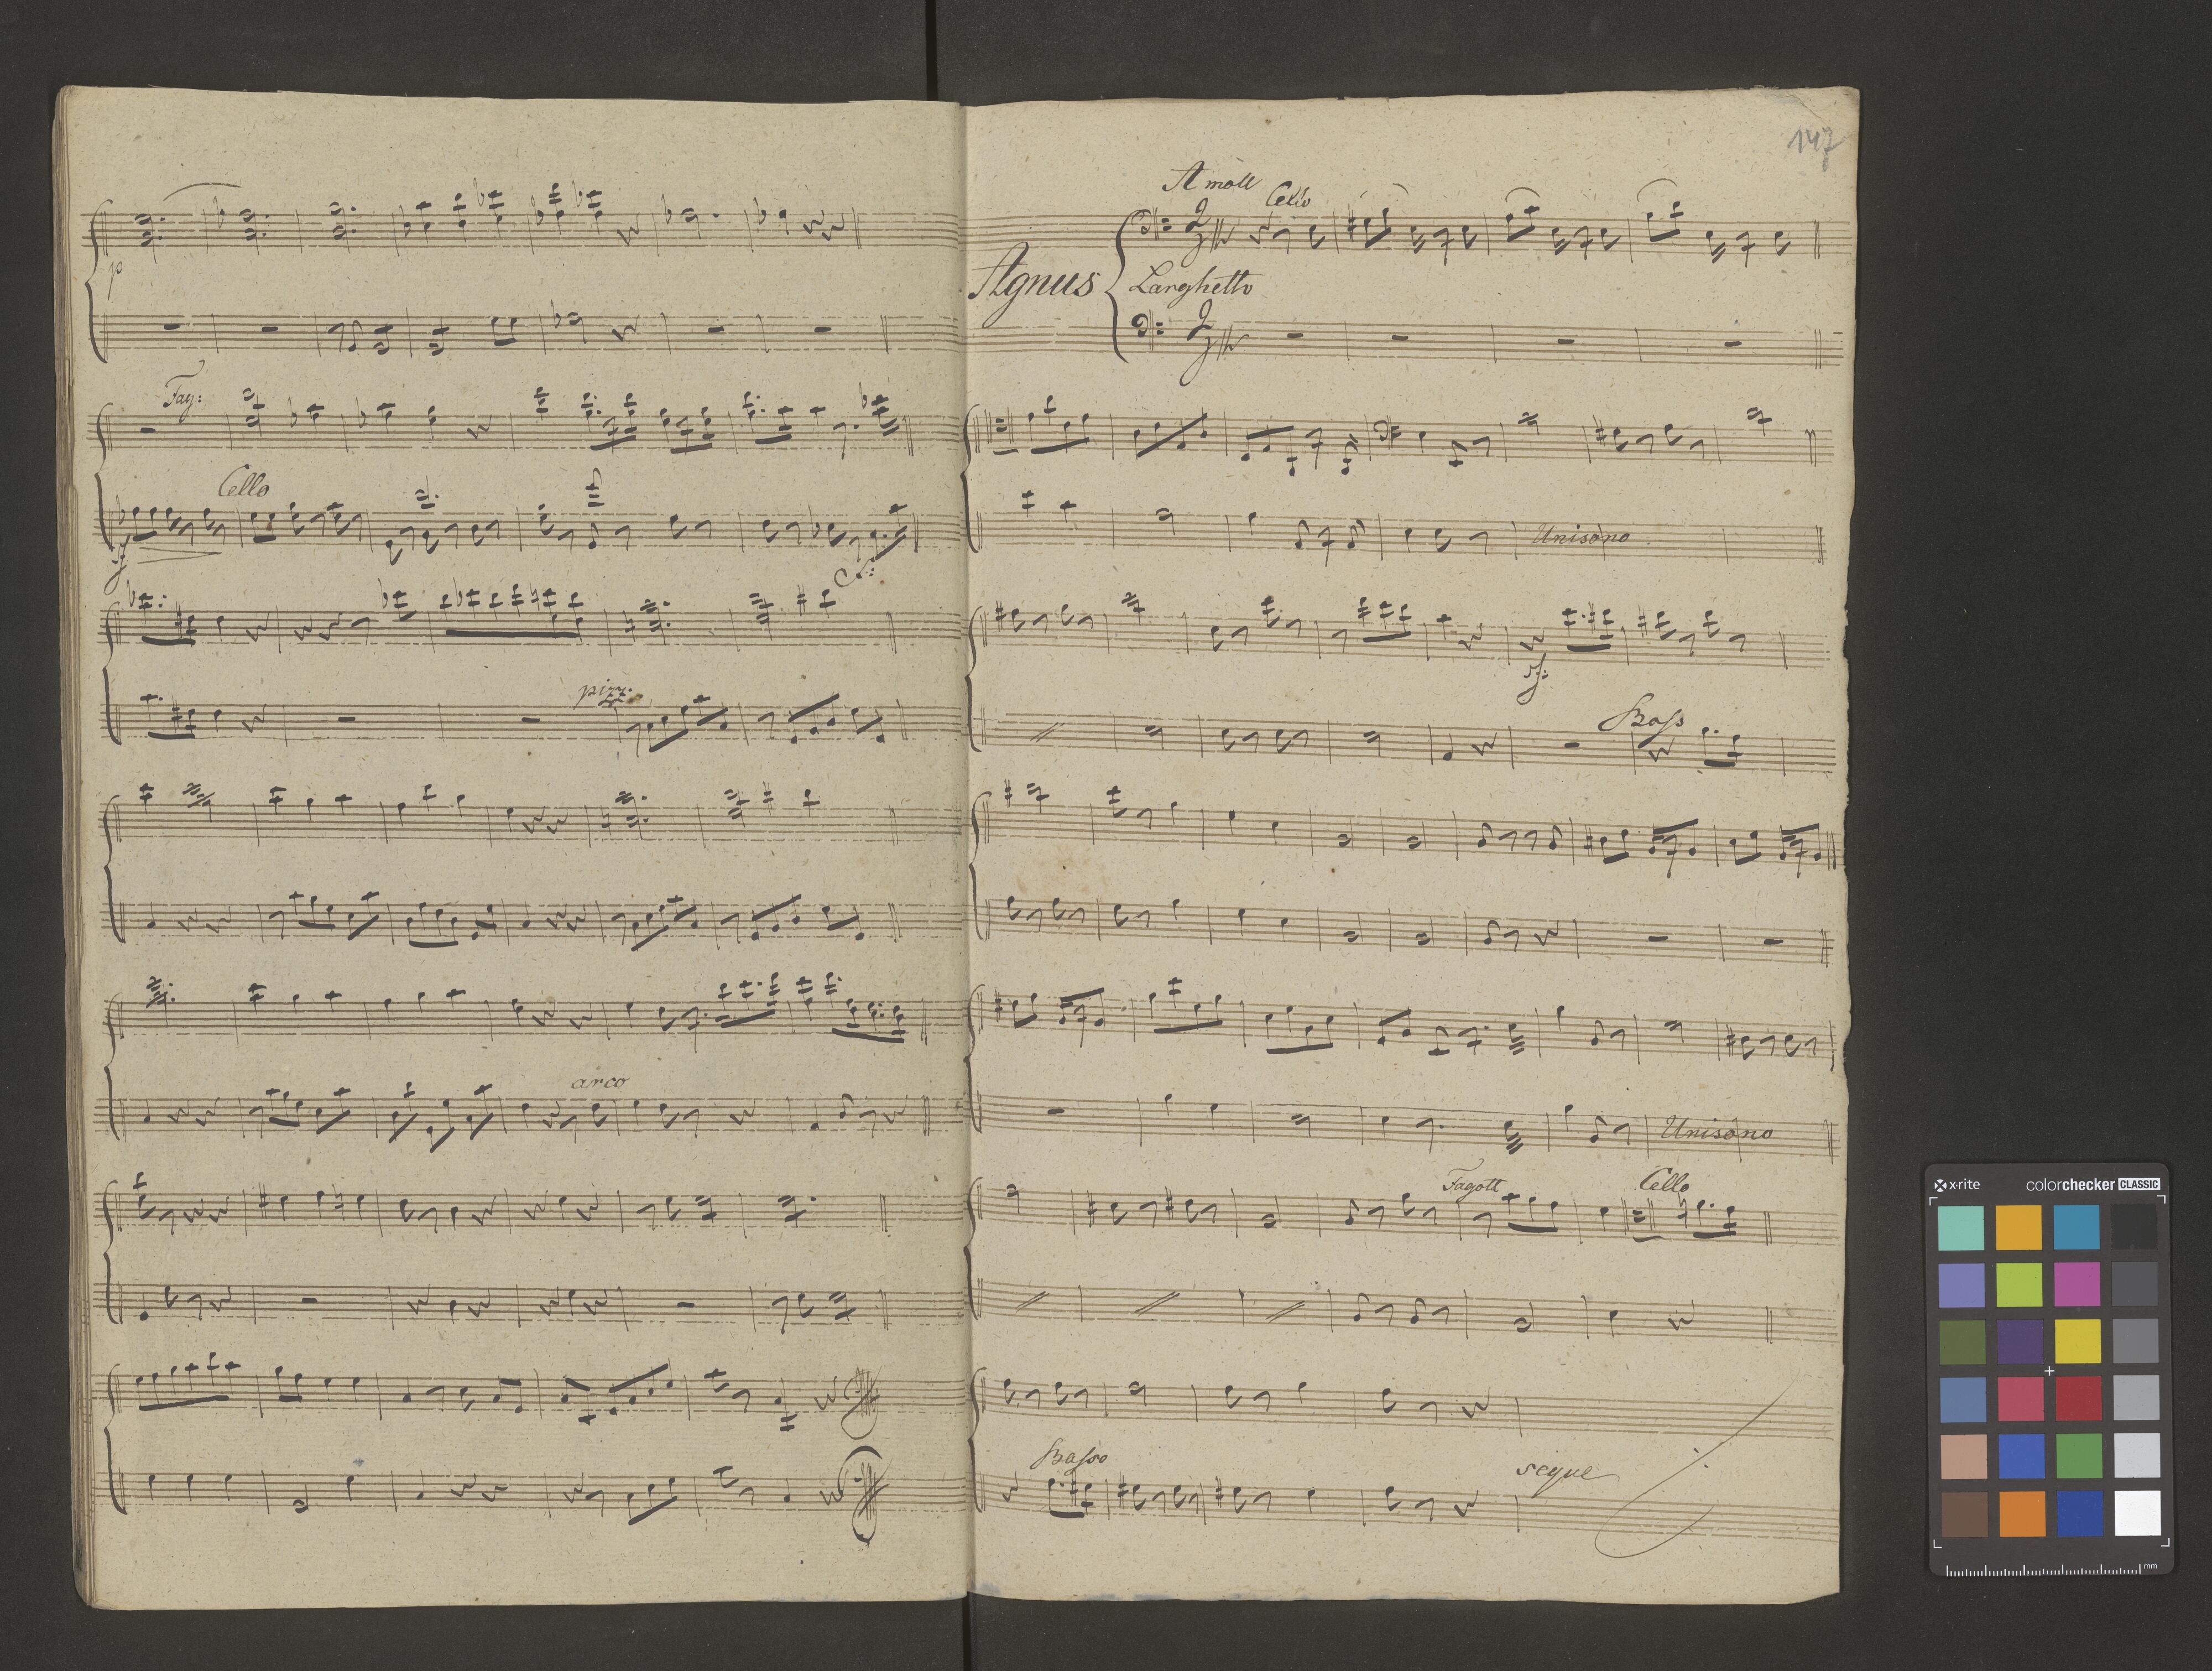 p
Fag:
Cello
sf
pizz.
arco
147
A moll
Cello
Agnus
Larghetto
Unisono
sf:
Bass
Unisono
Fagott
Cello
Basso
segue
x-rite
colorchecker CLASSIC
mm